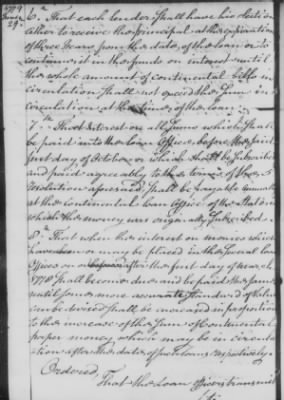 1779
June
29.
6.th That each lender shall have his election
either to receive the principal at the expiration
of three Years from the date of the loan or to
continue it in the funds on interest until
the whole amount of continental bills in
circulation shall not exceed the Sum in
circulation at the time of the loan.
7.th That Interest on all Sums which shall
be paid into the Loan Offices before the said
first day of October or which shall be subscribed
and paid agreeably to the terms of the 5
resolution aforesaid shall be payable annually
at the continental Loan Office of the State in
which the money was originally subscribed.
8.th That when the interest on monies which
have been or may be placed in the several loan
Offices on or before after the first day of March
1778 shall become due and be paid the same
until some more accurate Standard of Value
can be devised shall be increased in proportion
to the increase of the Sum of Continental
paper money which may be in circulation
after the date of the loans respectively.
Ordered,
That the Loan Officers transmit